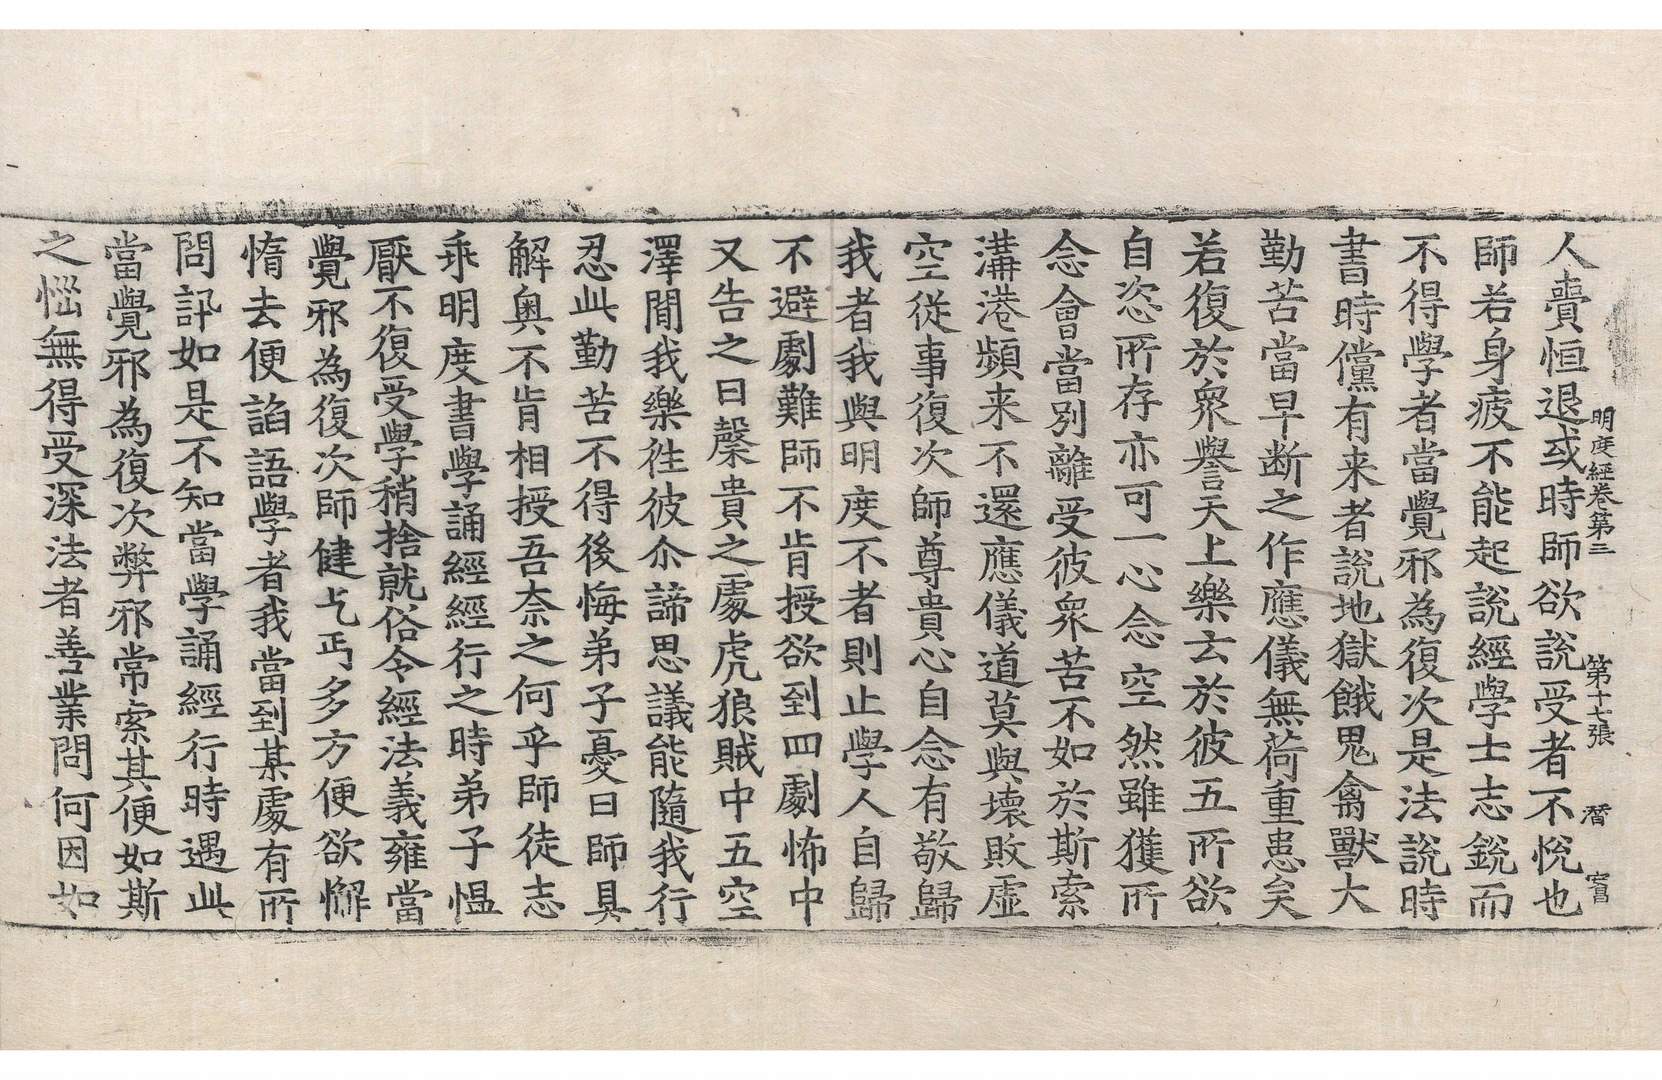 明度經卷第三 第十七張 㬱 寫
人賷恒退或時師欲說受者不悅也
師若身疲不能起說經學士志銳而
不得學者當覺邪為復次是法說時
書時儻有来者說地獄餓鬼禽獸大
勤苦當早断之作應儀無荷重患矣
若復於衆譽天上樂去於彼五所欲
自恣所存亦可一心念空然雖獲所
念會當別離受彼衆苦不如於斯索
溝港頻来不還應儀道莫與壞敗虛
空從事復次師尊貴心自念有敬歸
我者我與明度不者則止學人自歸
不避劇難師不肯授欲到四劇怖中
又告之曰槩貴之處虎狼賊中五空
澤間我樂往彼尒諦思議能隨我行
忍此勤苦不得後悔弟子憂曰師具
解奧不肯相授吾奈之何乎師徒志
乖明度書學誦經經行之時弟子愠
厭不復受學稍捨就俗令經法義雍當
覺邪為復次師健乞丐多方便欲懈
惰去便謟語學者我當到某處有所
問訊如是不知當學誦經行時遇此
當覺邪為復次弊邪常索其便如斯
之惱無得受深法者善業問何因如